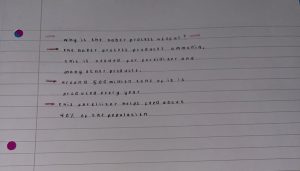 Why is the haber process useful?
the haber process produces ammonia,
this is needed for fertiliser and
many other products.
around 500 million tons of it is
produced every year
this fertiliser helps feed about
40% of the population